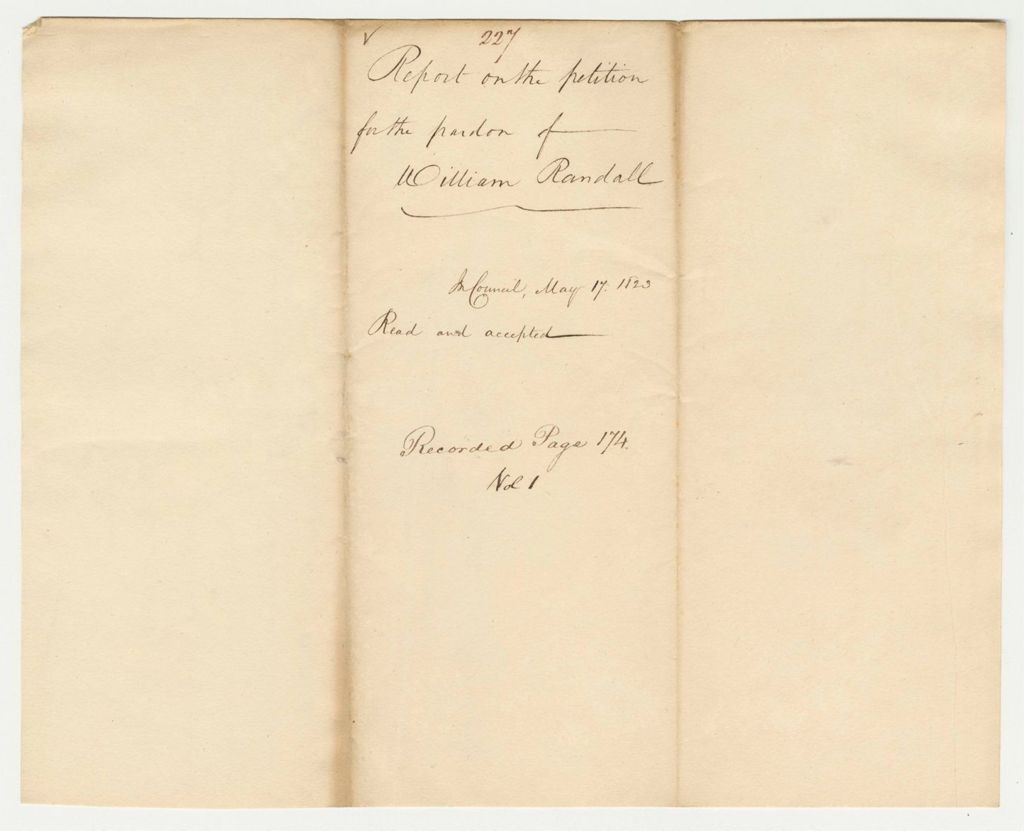 227
Report on the petition
for the pardon of
William Randall
In Council, May 17. 1823
Read and accepted
Recorded Page 174.
Vol 1